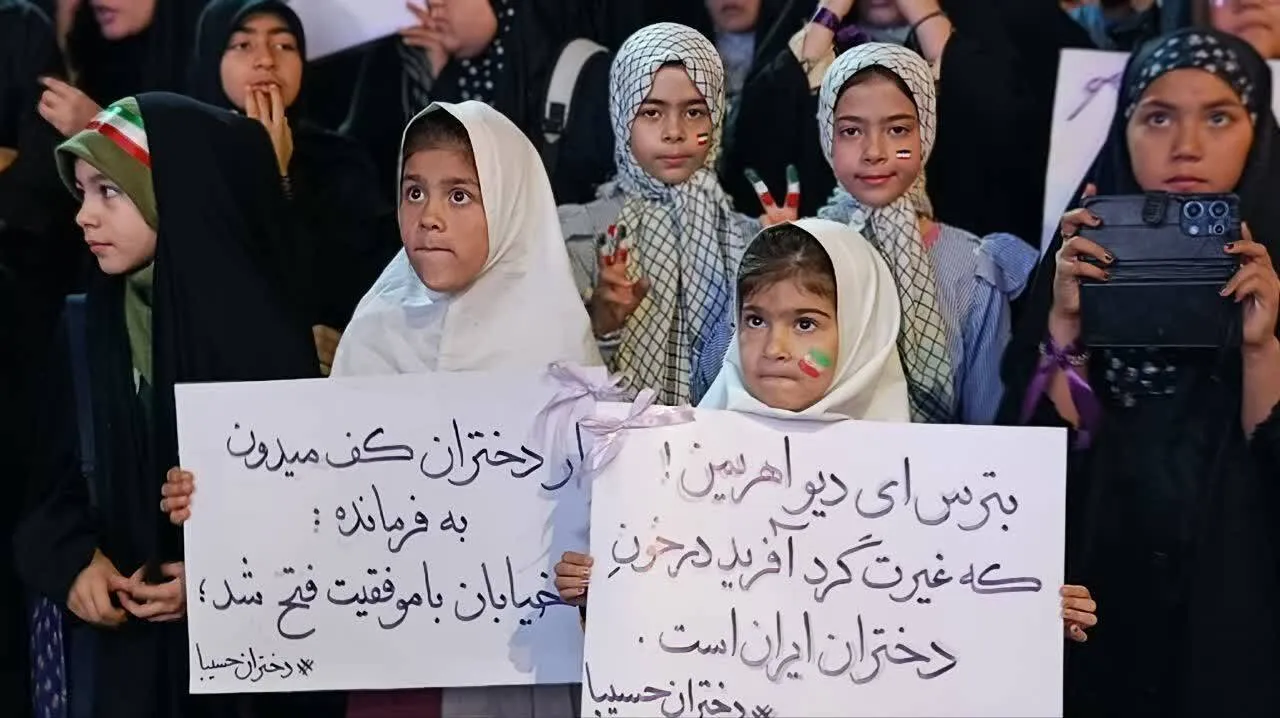 بترس ای دیو اهریمن !
که غیرت گرد آفرید در خونِ
دختران ایران است .
#دختران حسیبا
از دختران کف میدون
به فرمانده :
خیابان با موفقیت فتح شد ؛
#دختران حسیبا